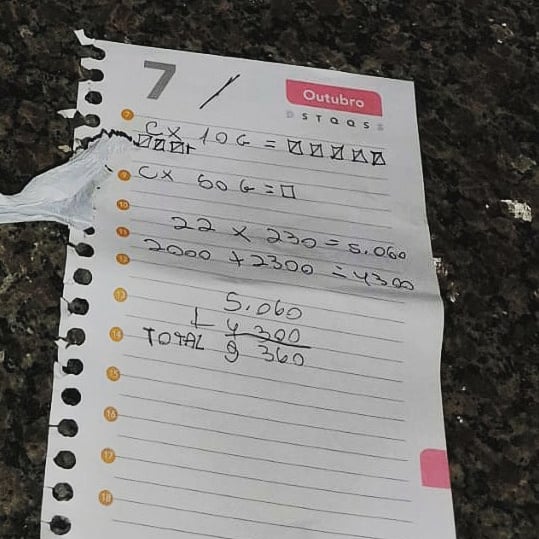 7 / Outubro
D S T Q Q S S
7
CX 10G =
9 CX 50G =
10
11 22 X 230 = 5.060
12 2000 + 2300 = 4300
13 5.060
+ 4 300
14 TOTAL 9 360
15
16
17
18